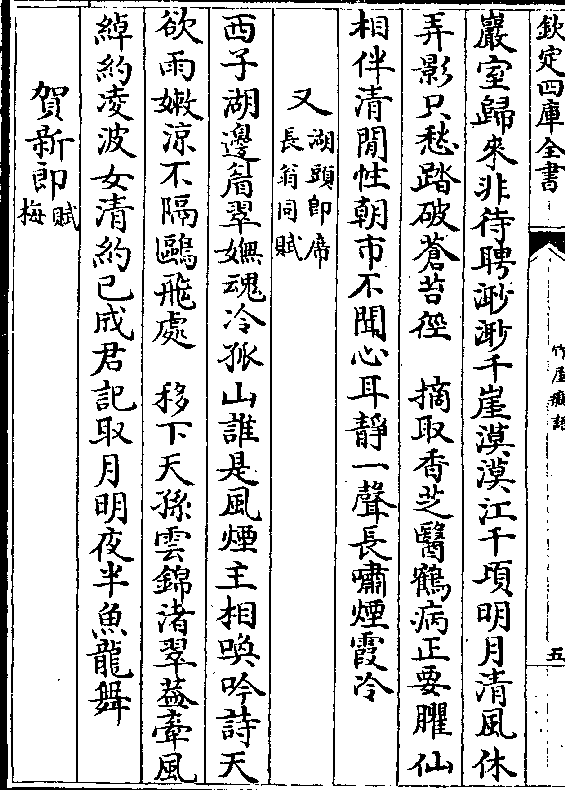 欽定四庫全書
竹屋癡語
五
巖室歸來非待聘渺渺千崖漠漠江千頃明月清風休
弄影只愁踏破蒼苔徑　摘取香芝醫鶴病正要臞仙
相伴清閒性朝市不聞心耳靜一聲長嘯煙霞冷
又湖頭即席
長翁同賦
西子湖邊眉翠嫵魂冷孤山誰是風煙主相喚吟詩天
欲雨嫩涼不隔鷗飛處　移下天孫雲錦渚翠蓋牽風
綽約凌波女清約已成君記取月明夜半魚龍舞
賀新郎賦
梅